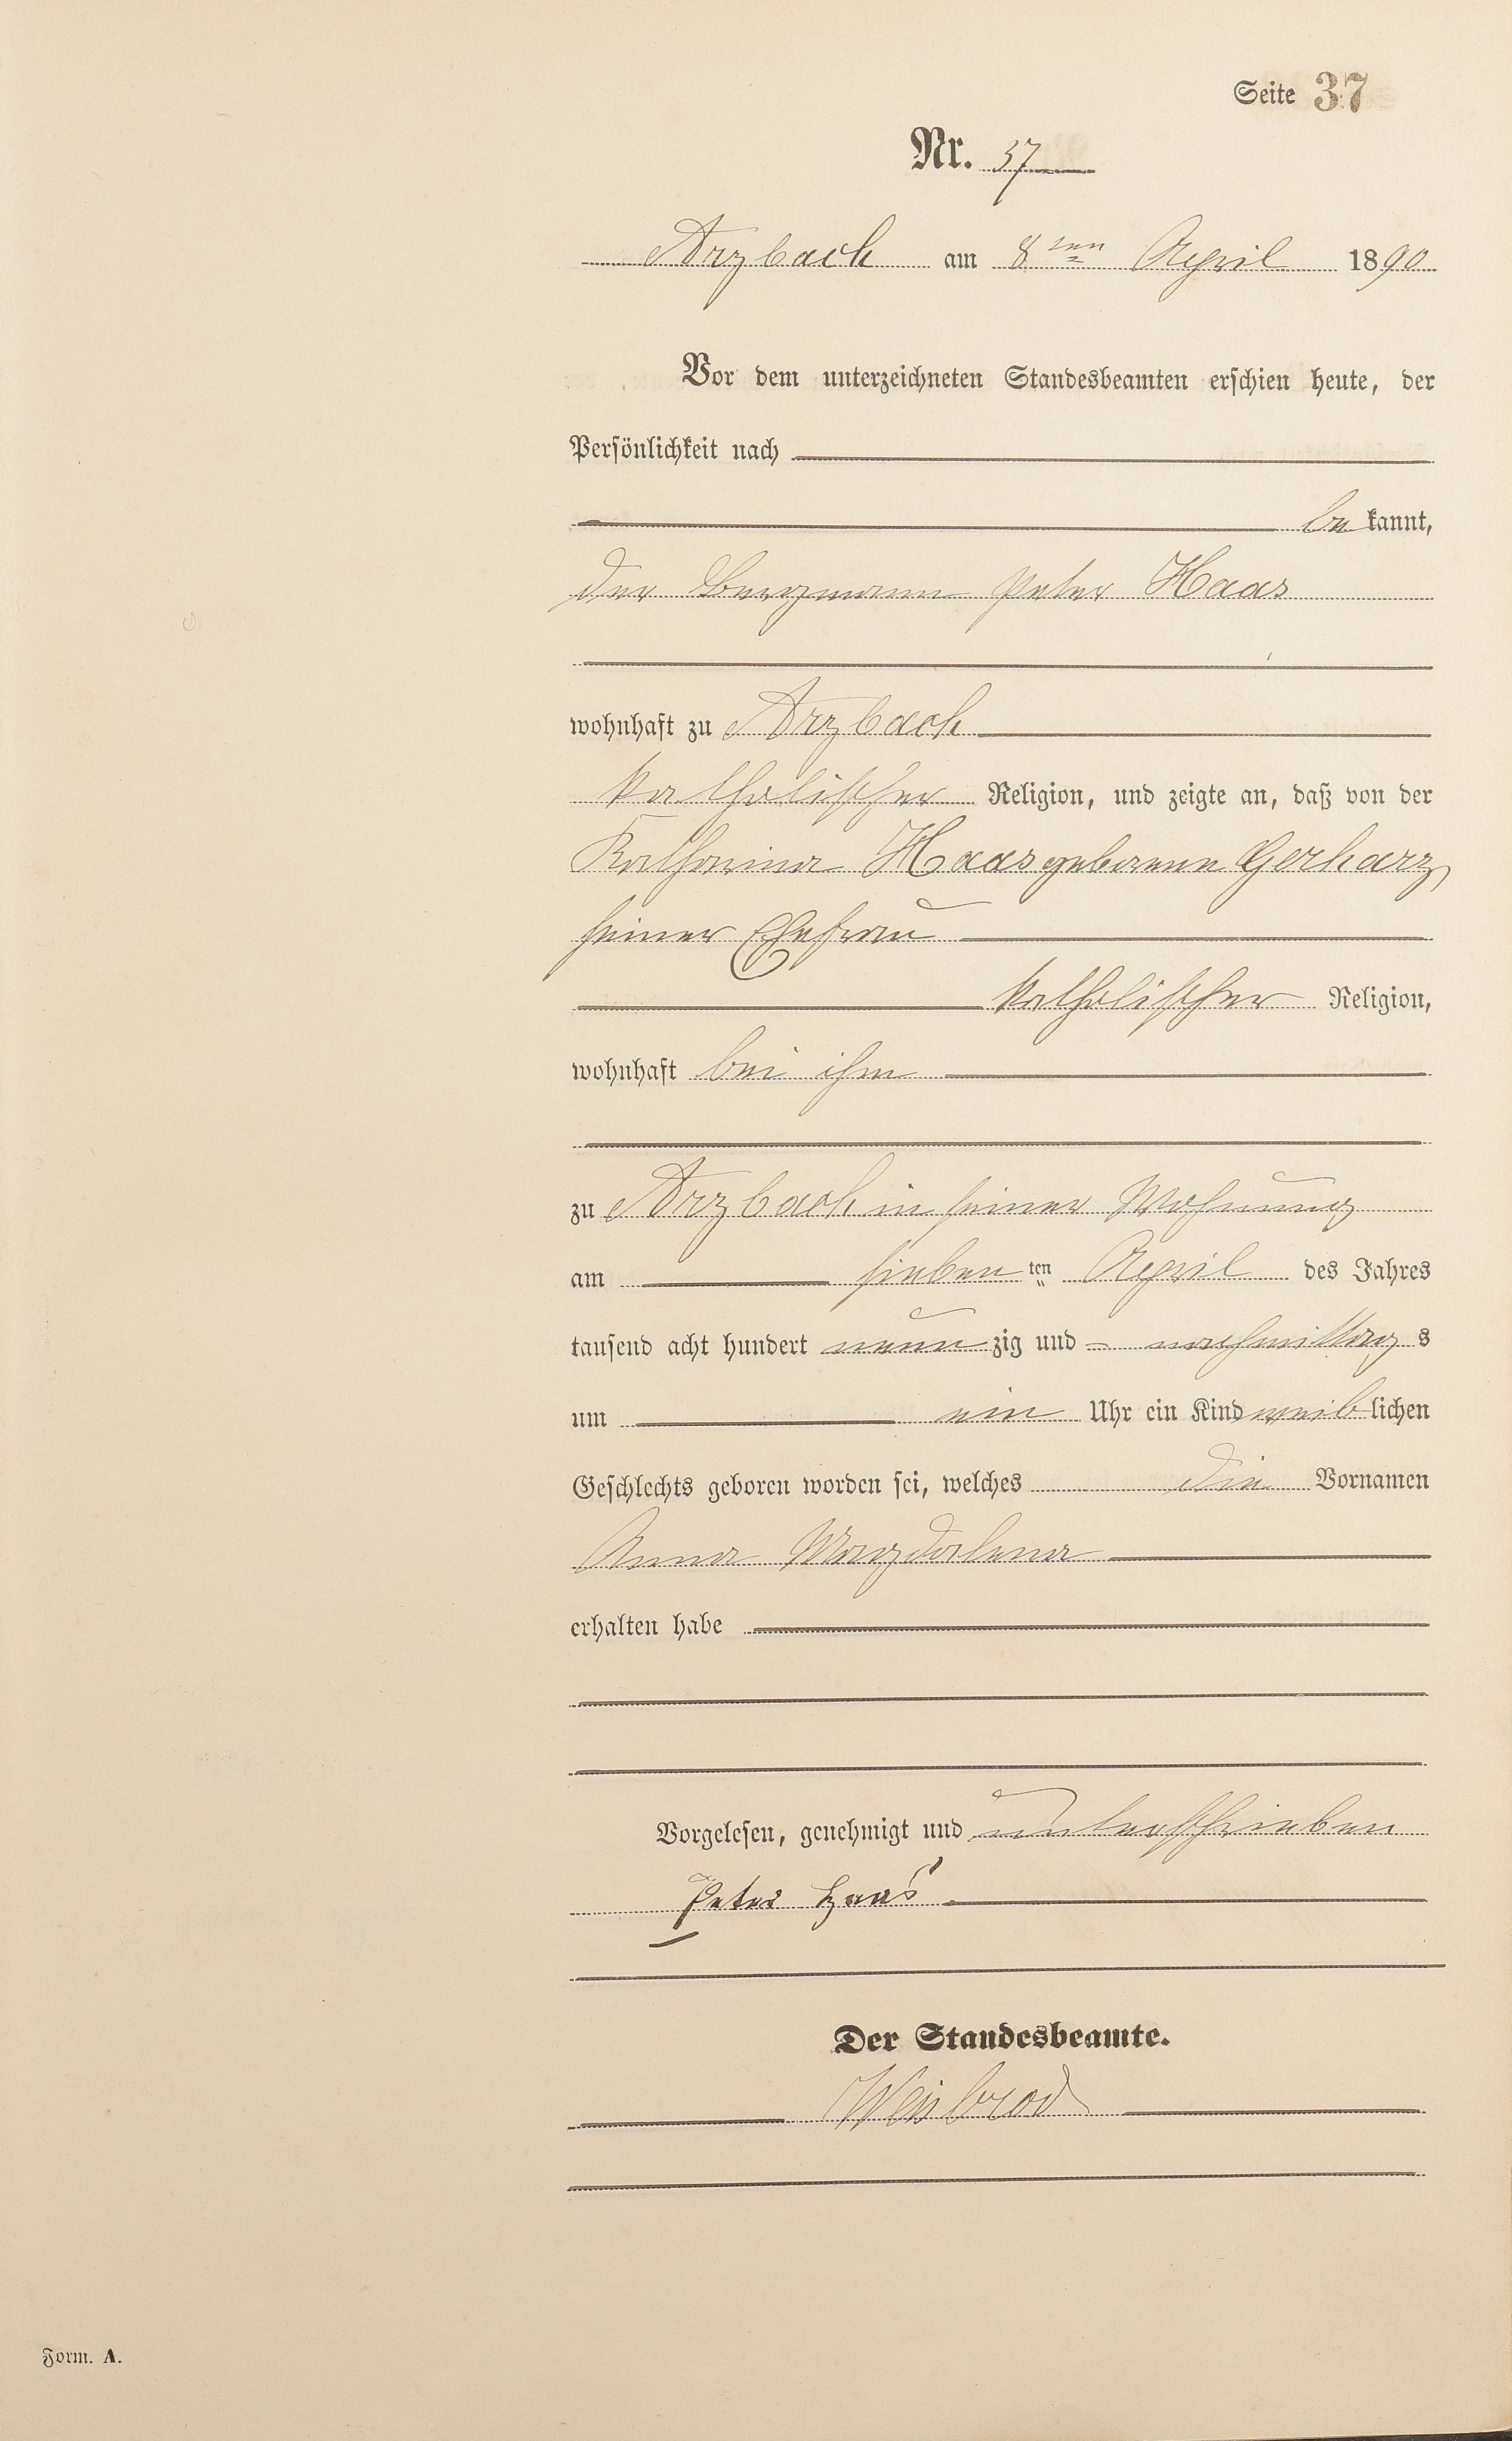 Seite 37
Nr. 37
Arzbach am 8ten April 1890
Vor dem unterzeichneten Standesbeamten erschien heute, der
Persönlichkeit nach
bekannt,
der Bergmann Peter Haas
wohnhaft zu Arzbach
katholischer Religion, und zeigte an, daß von der
Katharina Haas geborene Gerharz,
seiner Ehefrau
katholischer Religion,
wohnhaft bei ihm
zu Arzbach in seiner Wohnung
am sieben ten April des Jahres
tausend acht hundert neunzig und - nachmittags
um ein Uhr ein Kind weiblichen
Geschlechts geboren worden sei, welches die Vornamen
Anna Magdalena
erhalten habe
Vorgelesen, genehmigt und unterschrieben
Peter Haas
Der Standesbeamte.
Weisbrod
Form. A.